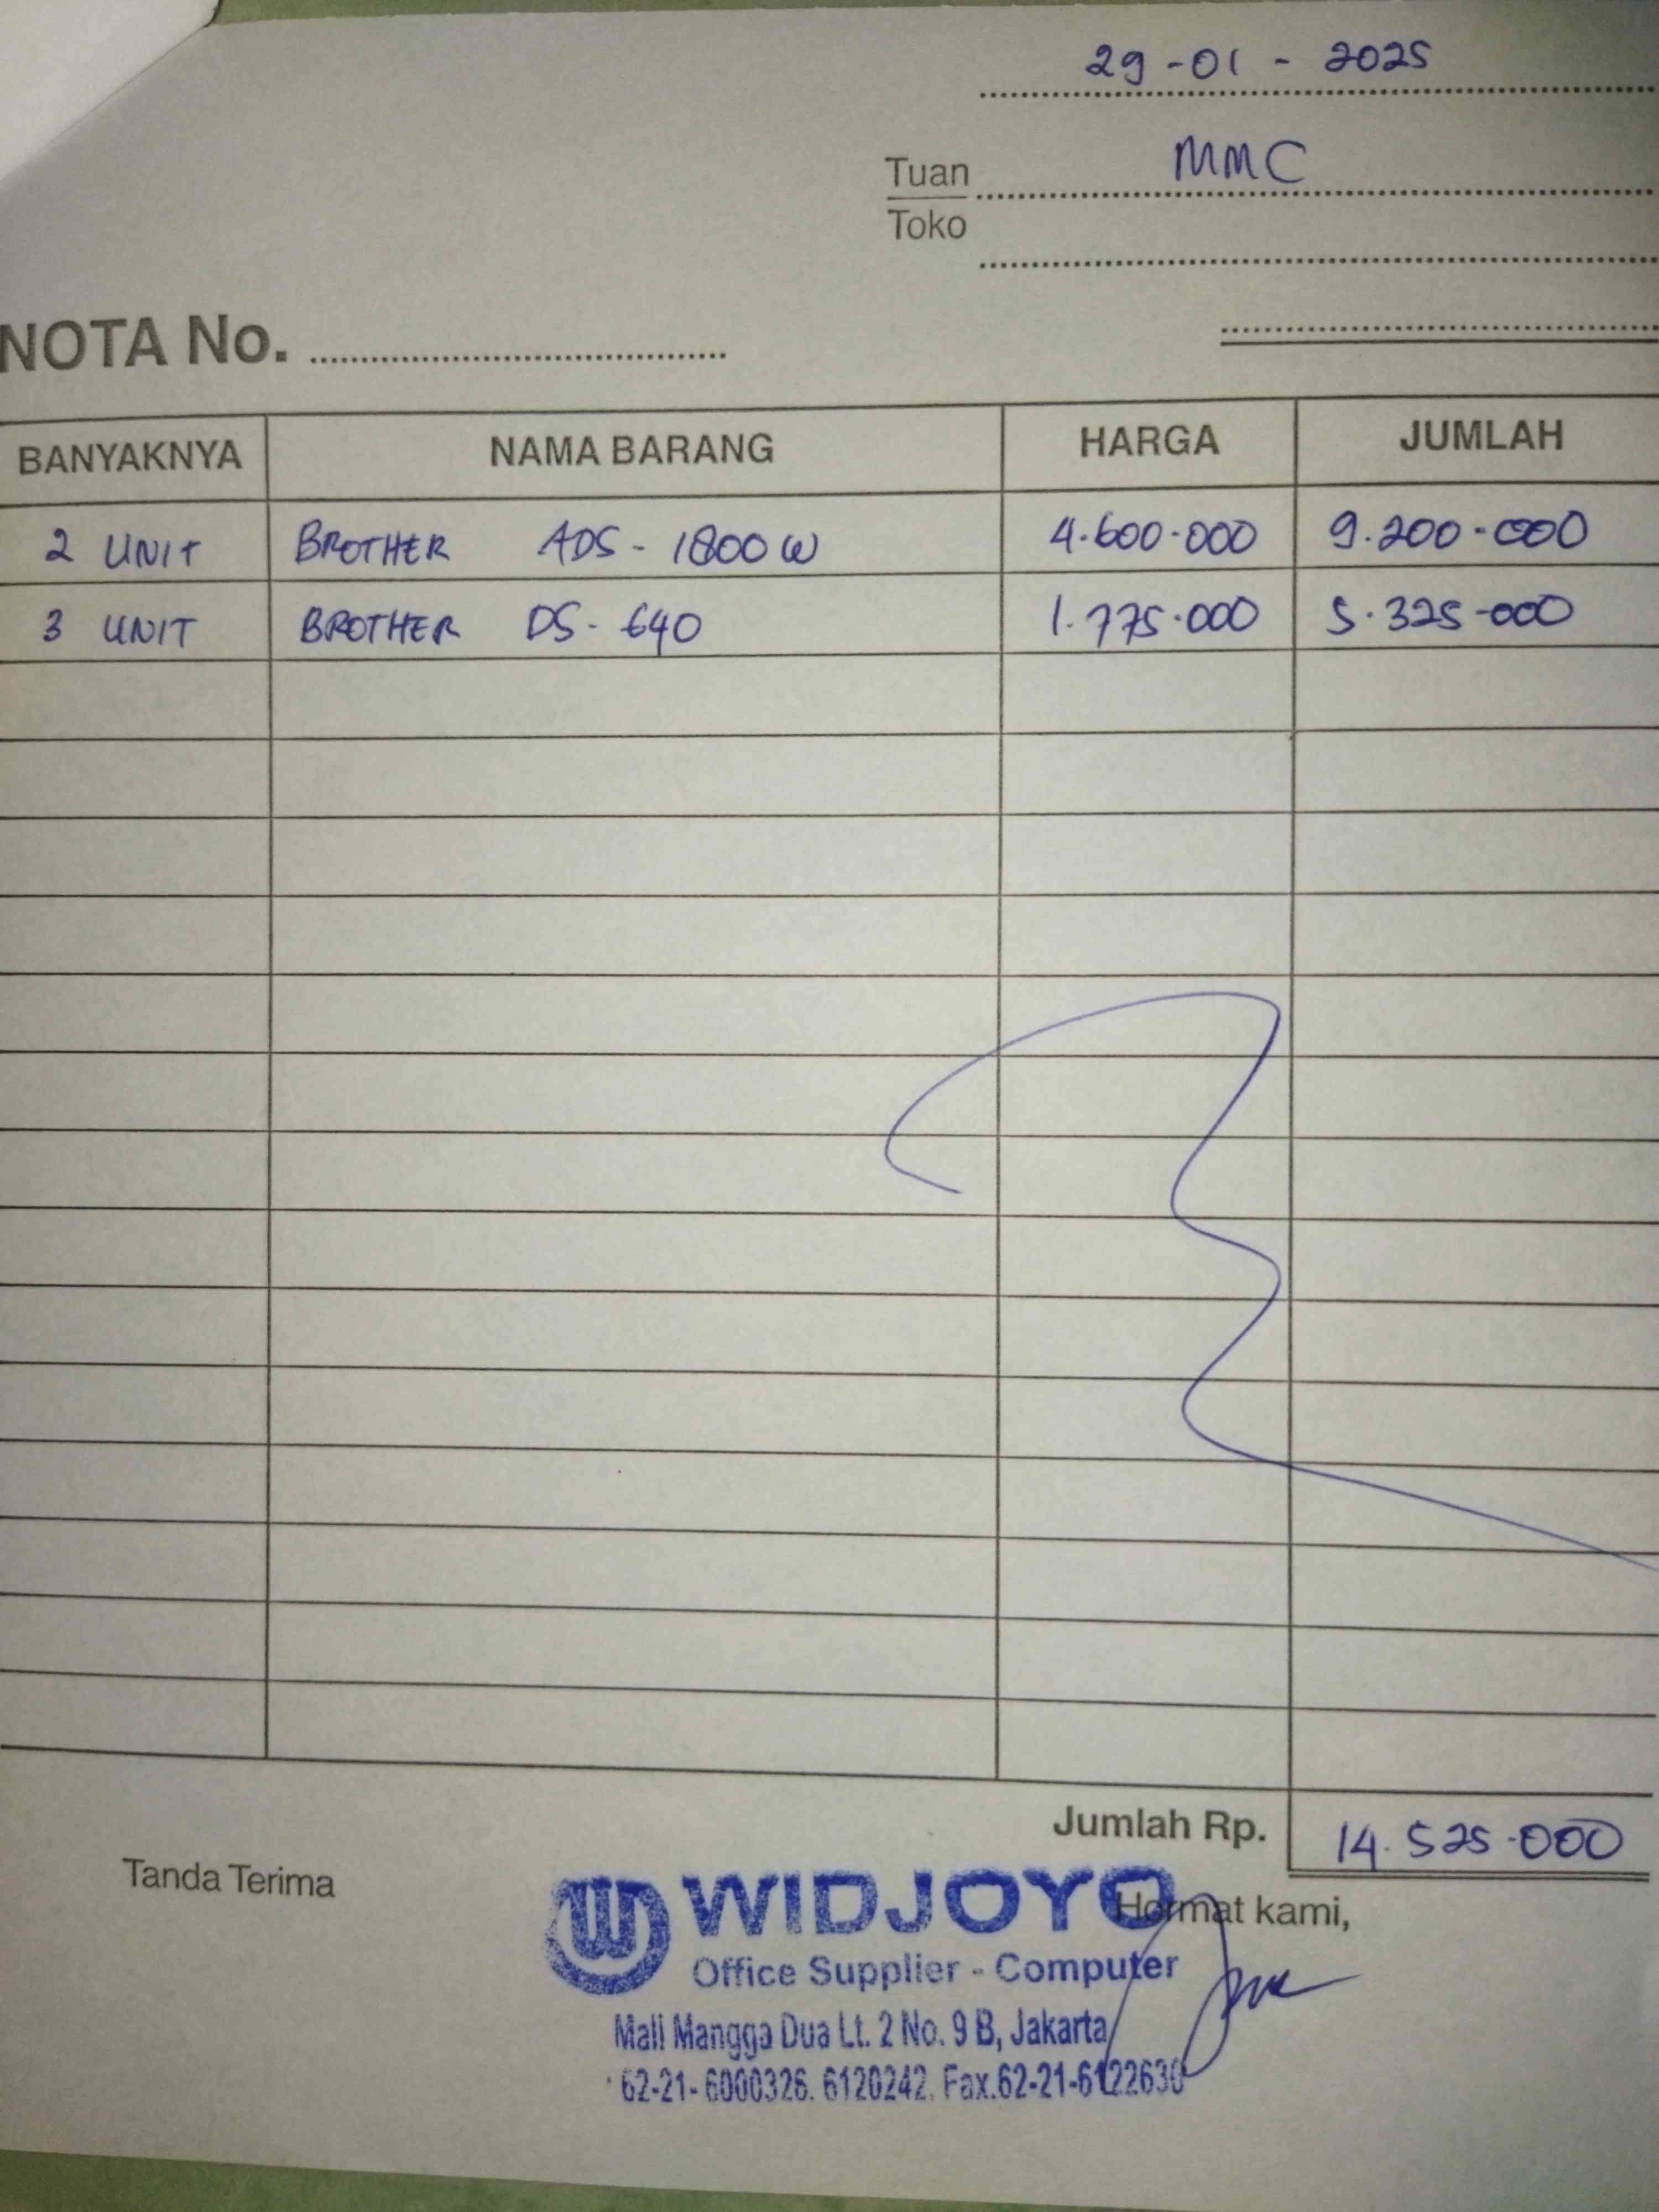 29-01-2025
Tuan MMC
Toko
NOTA No.
BANYAKNYA NAMA BARANG HARGA JUMLAH
2 UNIT BROTHER ADS-1800W 4.600.000 9.200.000
3 UNIT BROTHER DS-640 1.775.000 5.325.000
Jumlah Rp. 14.525.000
Tanda Terima
Hormat kami,
WIDJOYO
Office Supplier - Computer
Mall Mangga Dua Lt. 2 No. 9 B, Jakarta
62-21-6000326. 6120242. Fax.62-21-6122630